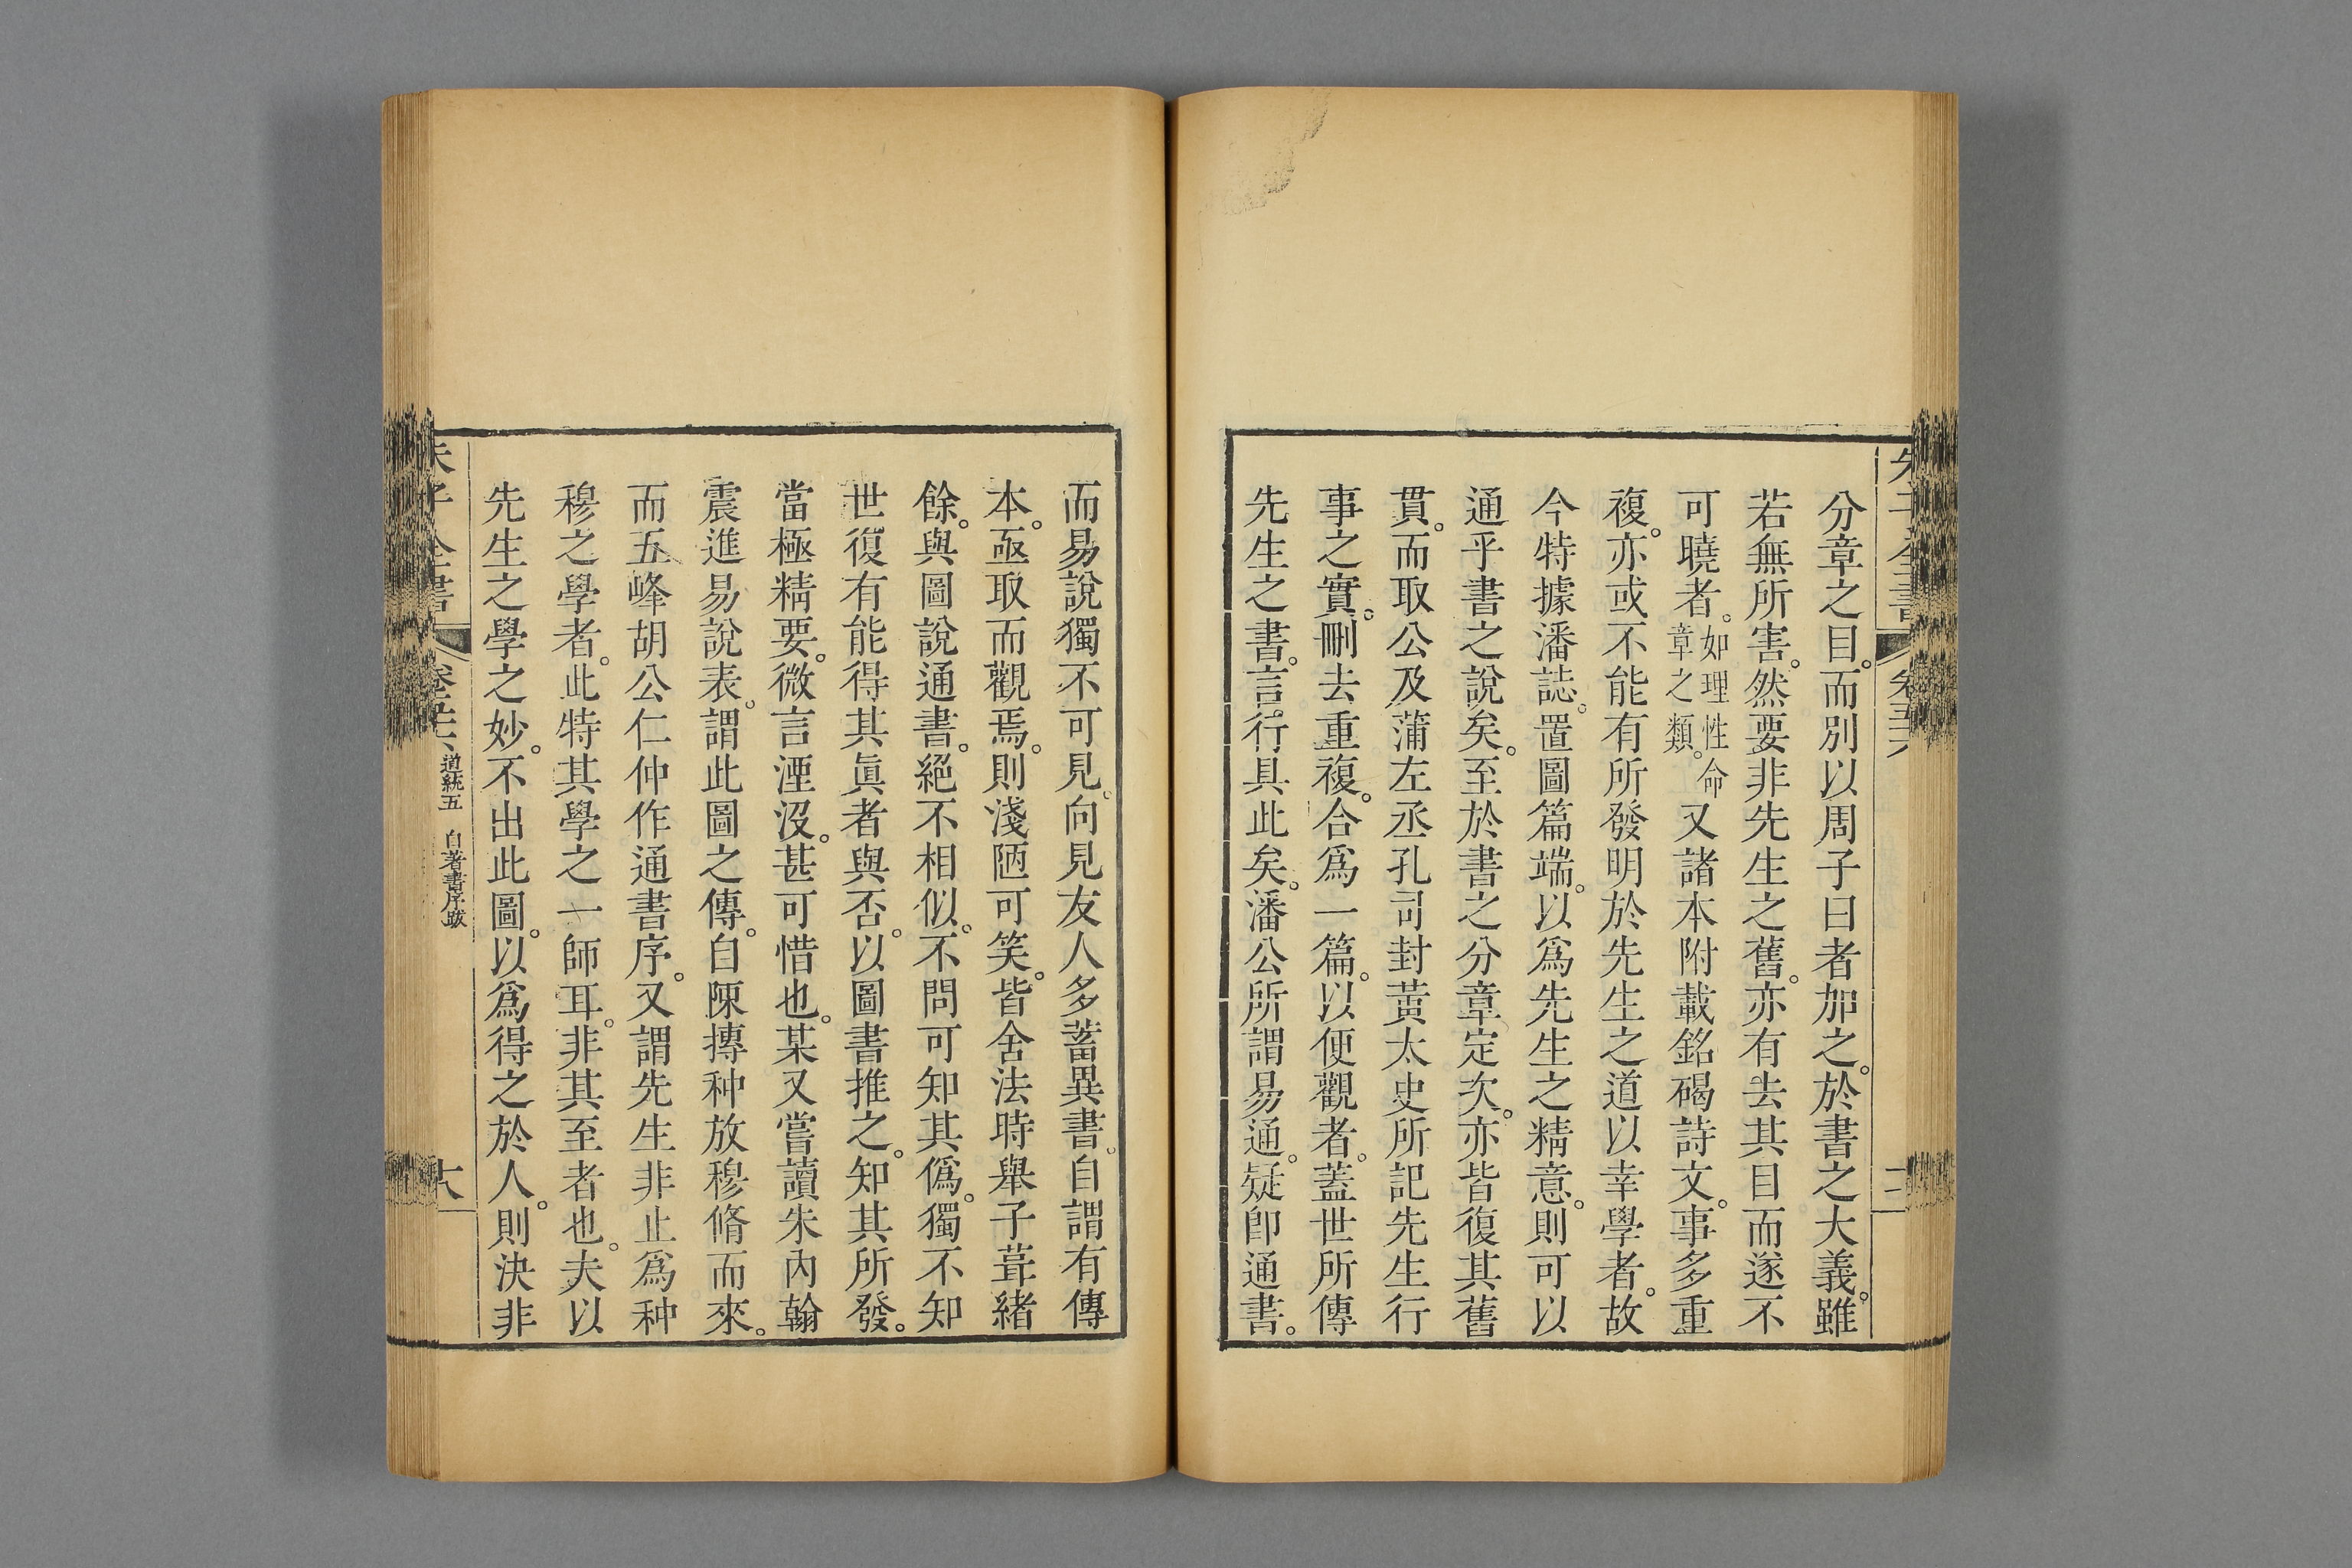 分章之目。而別以周子曰者加之。於書之大義。雖
若無所害。然要非先生之舊。亦有去其目而遂不
可曉者。如理性命章之類。又諸本附載銘碣詩文。事多重
複。亦或不能有所發明於先生之道以幸學者。故
今特據潘誌。置圖篇端。以爲先生之精意。則可以
通乎書之說矣。至於書之分章定次。亦皆復其舊
貫。而取公及蒲左丞孔司封黃太史所記先生行
事之實。刪去重複。合爲一篇。以便觀者。蓋世所傳
先生之書。言行具此矣。潘公所謂易通。疑卽通書。
而易說獨不可見。向見友人多蓄異書。自謂有傳
本。亟取而觀焉。則淺陋可笑。皆舍法時舉子葺緒
餘。與圖說通書。絕不相似。不問可知其僞。獨不知
世復有能得其眞者與否。以圖書推之。知其所發。
當極精要。微言湮沒。甚可惜也。某又嘗讀朱內翰
震進易說表。謂此圖之傳。自陳摶种放穆脩而來。
而五峰胡公仁仲作通書序。又謂先生非止爲种
穆之學者。此特其學之一師耳。非其至者也。夫以
先生之學之妙。不出此圖。以爲得之於人。則決非
朱子全書 道統五 自著書序跋